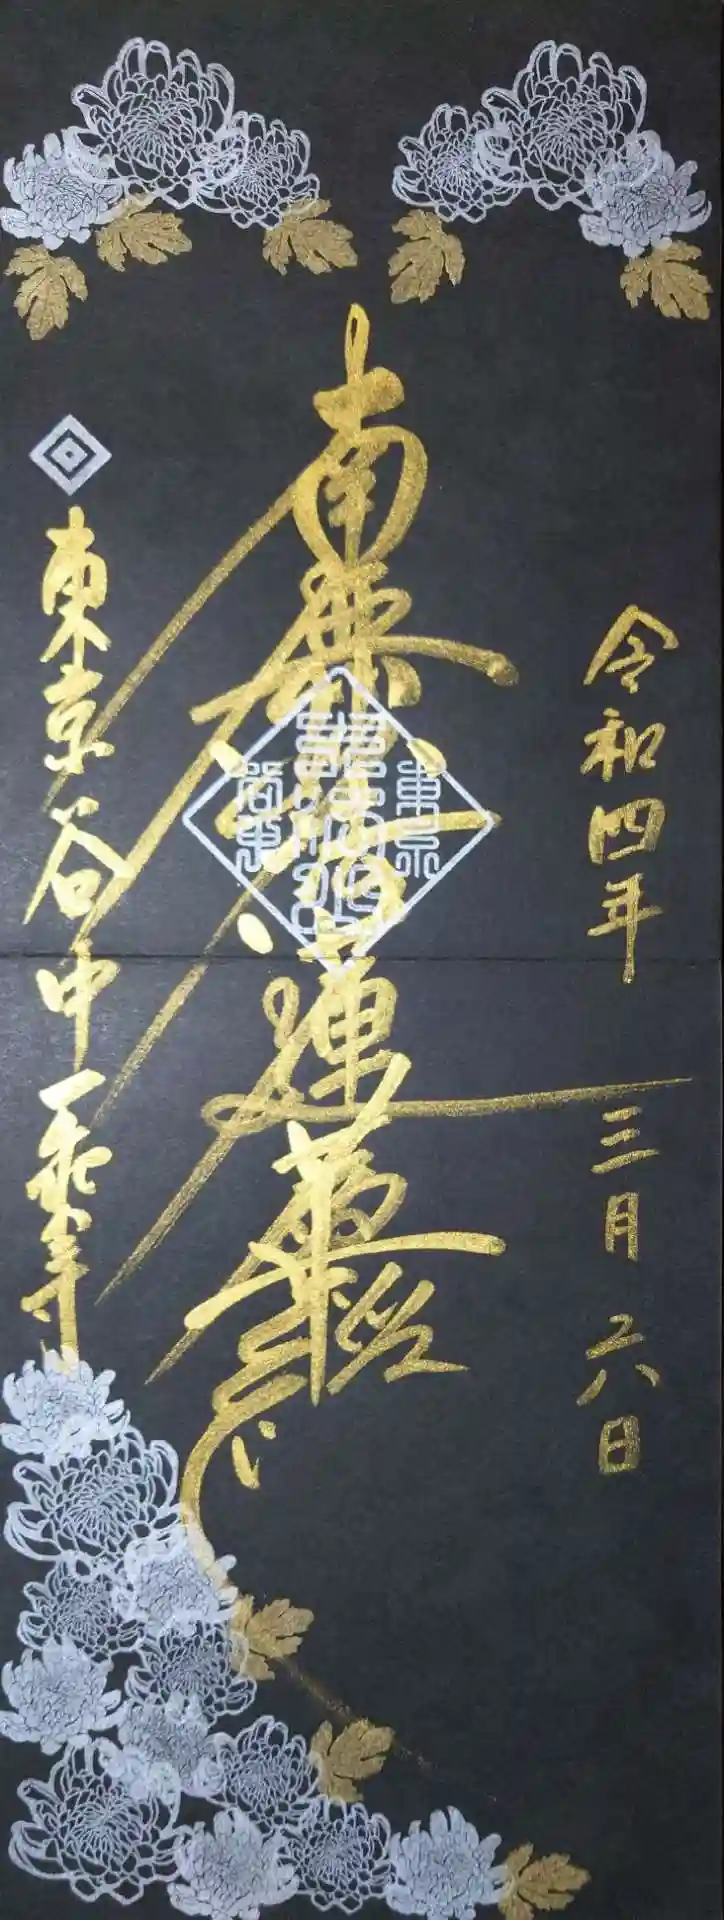 令和四年 三月 六日
南無妙法蓮華経
東京
谷中
東京谷中一乗寺